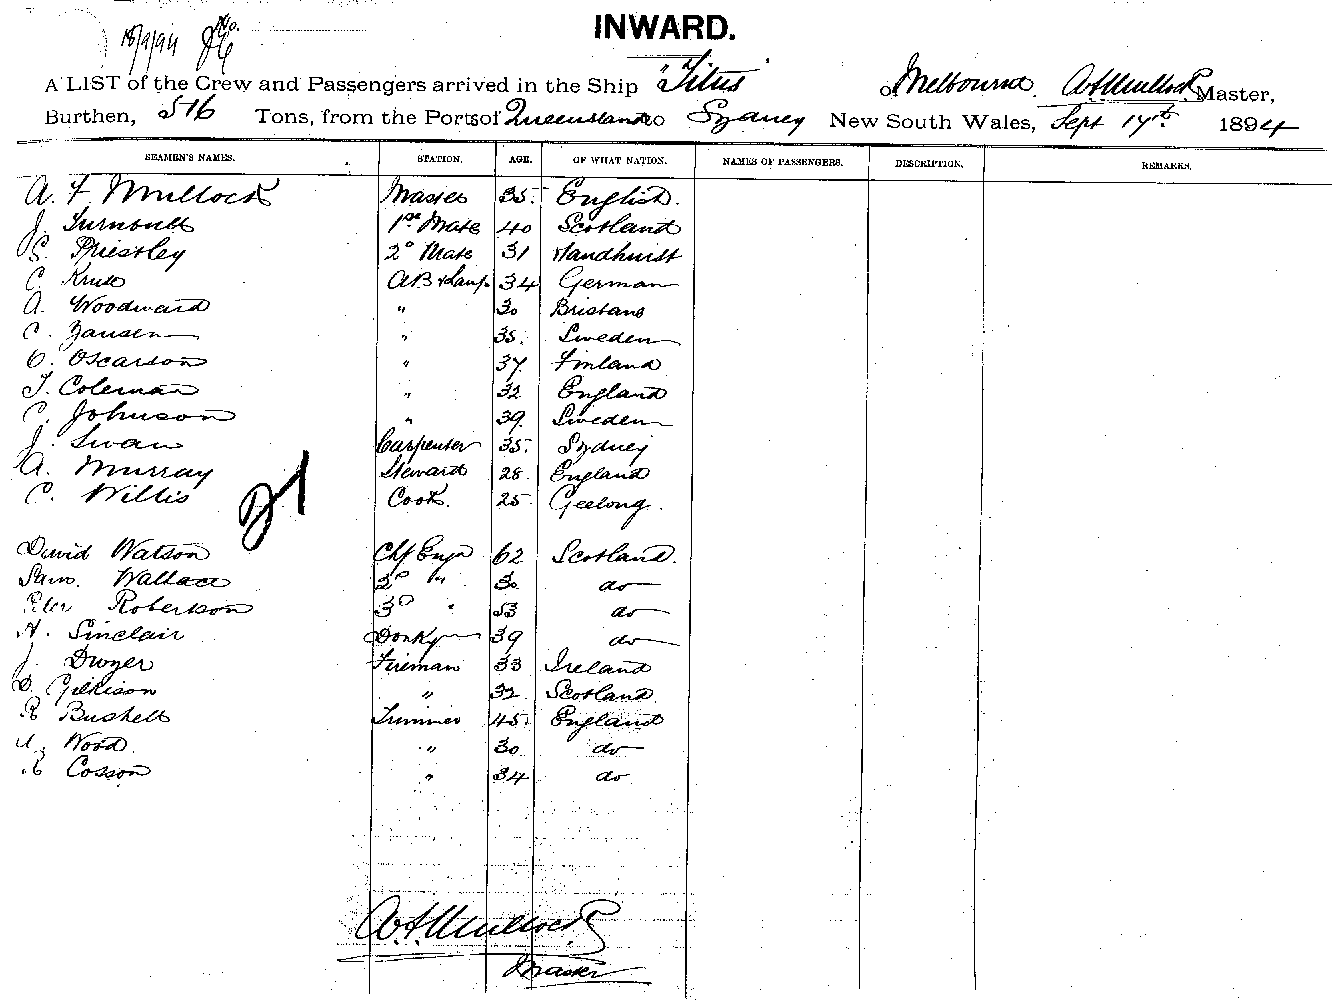 18/9/94
INWARD.
A LIST of the Crew and Passengers arrived in the Ship "Titus" of Melbourne A F Mullock, Master,
Burthen, 516 Tons, from the Port of Queensland to Sydney New South Wales, Sept 17th 1894
SEAMEN'S NAMES. STATION. AGE. OF WHAT NATION. NAMES OF PASSENGERS. DESCRIPTION. REMARKS.
A. F. Mullock Master 35 English.
J. Turnbull 1st Mate 40 Scotland
S. Priestley 2d Mate 31 Sandhurst
C. Kruse AB & Lamps 34 German
A. Woodward " 30 Brisbane
C. Jansen " 35. Sweden
O. Oscarson " 37 Finland
T. Coleman " 32 England
C. Johnson " 39. Sweden
J. Swan Carpenter 35. Sydney
A. Murray Steward 28 England
C. Willis Cook. 25 Geelong.
David Watson Chf Engr 62 Scotland.
Sam. Wallace 2d " 30 do
Peter Robertson 3d " 53 do
H. Sinclair Donkyn 39 do
J. Dwyer Fireman 33 Ireland
D. Gilkison " 32 Scotland
R Bushell Trimmer 45. England
Wood. " 30 do
Cosson " 34 do
A F Mullock
Master